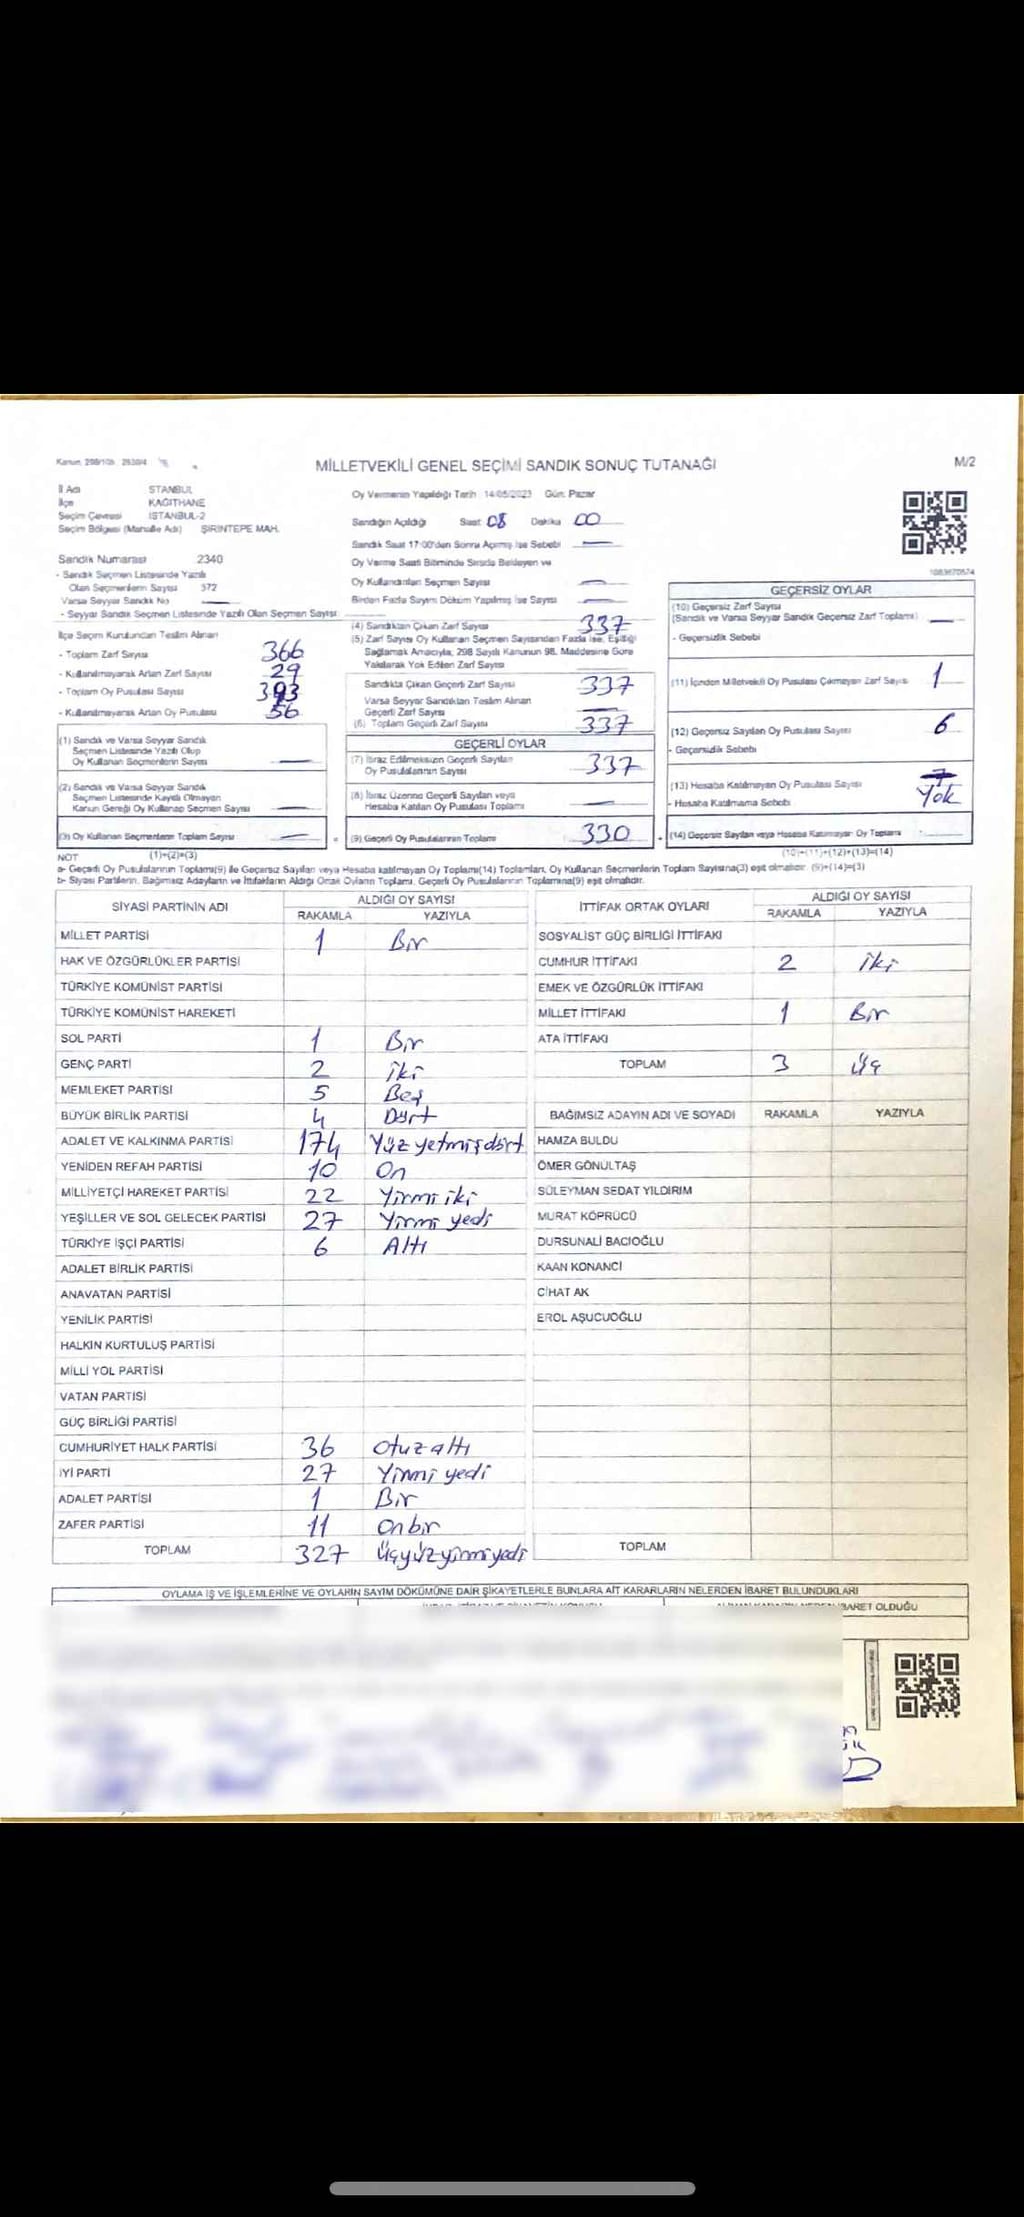 Kanun: 298/105 2839/4
MİLLETVEKİLİ GENEL SEÇİMİ SANDIK SONUÇ TUTANAĞI
M/2
İl Adı İSTANBUL
İlçe KAĞITHANE
Seçim Çevresi İSTANBUL-2
Seçim Bölgesi (Mahalle Adı) ŞİRİNTEPE MAH.
Sandık Numarası 2340
- Sandık Seçmen Listesinde Yazılı
Olan Seçmenlerin Sayısı 372
Varsa Seyyar Sandık No
- Seyyar Sandık Seçmen Listesinde Yazılı Olan Seçmen Sayısı
Oy Vermenin Yapıldığı Tarih 14/05/2023 Gün: Pazar
Sandığın Açıldığı Saat 08 Dakika 00
Sandık Saat 17:00'den Sonra Açılmış İse Sebebi
Oy Verme Saati Bitiminde Sırada Bekleyen ve
Oy Kullandırılan Seçmen Sayısı
Birden Fazla Sayım Döküm Yapılmış İse Sayısı
1083670574
İlçe Seçim Kurulundan Teslim Alınan
- Toplam Zarf Sayısı 366
- Kullanılmayarak Artan Zarf Sayısı 29
- Toplam Oy Pusulası Sayısı 393
- Kullanılmayarak Artan Oy Pusulası 56
(1) Sandık ve Varsa Seyyar Sandık
Seçmen Listesinde Yazılı Olup
Oy Kullanan Seçmenlerin Sayısı
(2) Sandık ve Varsa Seyyar Sandık
Seçmen Listesinde Kayıtlı Olmayan
Kanun Gereği Oy Kullanan Seçmen Sayısı
(3) Oy Kullanan Seçmenlerin Toplam Sayısı
(1)+(2)=(3)
(4) Sandıktan Çıkan Zarf Sayısı 337
(5) Zarf Sayısı Oy Kullanan Seçmen Sayısından Fazla İse, Eşitliği
Sağlamak Amacıyla, 298 Sayılı Kanunun 98. Maddesine Göre
Yakılarak Yok Edilen Zarf Sayısı
Sandıkta Çıkan Geçerli Zarf Sayısı 337
Varsa Seyyar Sandıktan Teslim Alınan
Geçerli Zarf Sayısı
(6) Toplam Geçerli Zarf Sayısı 337
GEÇERLİ OYLAR
(7) İtiraz Edilmeksizin Geçerli Sayılan
Oy Pusulalarının Sayısı 337
(8) İtiraz Üzerine Geçerli Sayılan veya
Hesaba Katılan Oy Pusulası Toplamı
(9) Geçerli Oy Pusulalarının Toplamı 330
GEÇERSİZ OYLAR
(10) Geçersiz Zarf Sayısı
(Sandık ve Varsa Seyyar Sandık Geçersiz Zarf Toplamı)
- Geçersizlik Sebebi
(11) İçinden Milletvekili Oy Pusulası Çıkmayan Zarf Sayısı 1
(12) Geçersiz Sayılan Oy Pusulası Sayısı 6
- Geçersizlik Sebebi
(13) Hesaba Katılmayan Oy Pusulası Sayısı 7 Yok
- Hesaba Katılmama Sebebi
(14) Geçersiz Sayılan veya Hesaba Katılmayan Oy Toplamı
(10)+(11)+(12)+(13)=(14)
NOT
a- Geçerli Oy Pusulalarının Toplamı(9) ile Geçersiz Sayılan veya Hesaba katılmayan Oy Toplamı(14) Toplamları, Oy Kullanan Seçmenlerin Toplam Sayısına(3) eşit olmalıdır. (9)+(14)=(3)
b- Siyasi Partilerin, Bağımsız Adayların ve İttifakların Aldığı Ortak Oyların Toplamı, Geçerli Oy Pusulalarının Toplamına(9) eşit olmalıdır.
SİYASİ PARTİNİN ADI ALDIĞI OY SAYISI
RAKAMLA YAZIYLA
MİLLET PARTİSİ 1 Bir
HAK VE ÖZGÜRLÜKLER PARTİSİ
TÜRKİYE KOMÜNİST PARTİSİ
TÜRKİYE KOMÜNİST HAREKETİ
SOL PARTİ 1 Bir
GENÇ PARTİ 2 iki
MEMLEKET PARTİSİ 5 Beş
BÜYÜK BİRLİK PARTİSİ 4 Dört
ADALET VE KALKINMA PARTİSİ 174 Yüz yetmiş dört
YENİDEN REFAH PARTİSİ 10 On
MİLLİYETÇİ HAREKET PARTİSİ 22 Yirmi iki
YEŞİLLER VE SOL GELECEK PARTİSİ 27 Yirmi yedi
TÜRKİYE İŞÇİ PARTİSİ 6 Altı
ADALET BİRLİK PARTİSİ
ANAVATAN PARTİSİ
YENİLİK PARTİSİ
HALKIN KURTULUŞ PARTİSİ
MİLLİ YOL PARTİSİ
VATAN PARTİSİ
GÜÇ BİRLİĞİ PARTİSİ
CUMHURİYET HALK PARTİSİ 36 otuz altı
İYİ PARTİ 27 Yirmi yedi
ADALET PARTİSİ 1 Bir
ZAFER PARTİSİ 11 Onbir
TOPLAM 327 Üçyüzyirmiyedi
İTTİFAK ORTAK OYLARI ALDIĞI OY SAYISI
RAKAMLA YAZIYLA
SOSYALİST GÜÇ BİRLİĞİ İTTİFAKI
CUMHUR İTTİFAKI 2 iki
EMEK VE ÖZGÜRLÜK İTTİFAKI
MİLLET İTTİFAKI 1 Bir
ATA İTTİFAKI
TOPLAM 3 üç
BAĞIMSIZ ADAYIN ADI VE SOYADI RAKAMLA YAZIYLA
HAMZA BULDU
ÖMER GÖNÜLTAŞ
SÜLEYMAN SEDAT YILDIRIM
MURAT KÖPRÜCÜ
DURSUNALİ BACIOĞLU
KAAN KONANCI
CİHAT AK
EROL AŞUCUOĞLU
TOPLAM
OYLAMA İŞ VE İŞLEMLERİNE VE OYLARIN SAYIM DÖKÜMÜNE DAİR ŞİKAYETLERLE BUNLARA AİT KARARLARIN NELERDEN İBARET BULUNDUKLARI
BARET OLDUĞU